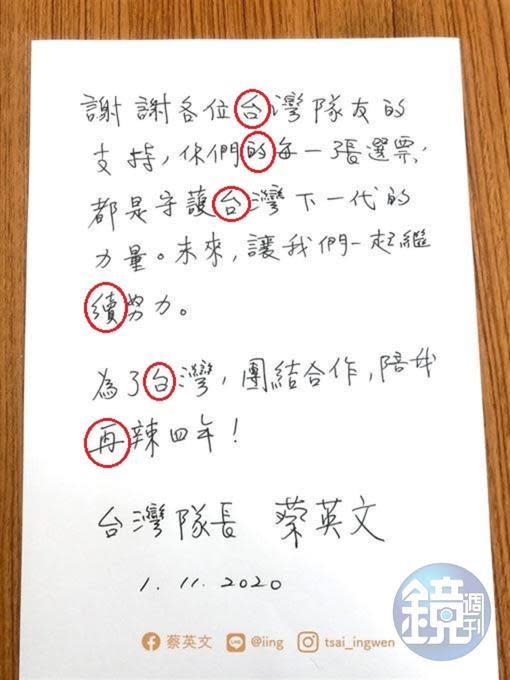 謝謝各位台灣隊友的
支持,你們的每一張選票,
都是守護台灣下一代的
力量。未來,讓我們一起繼
續努力。
為了台灣,團結合作,陪我
再辣四年!
台灣隊長 蔡英文
1.11.2020
蔡英文 @iing tsai_ingwen
鏡週刊